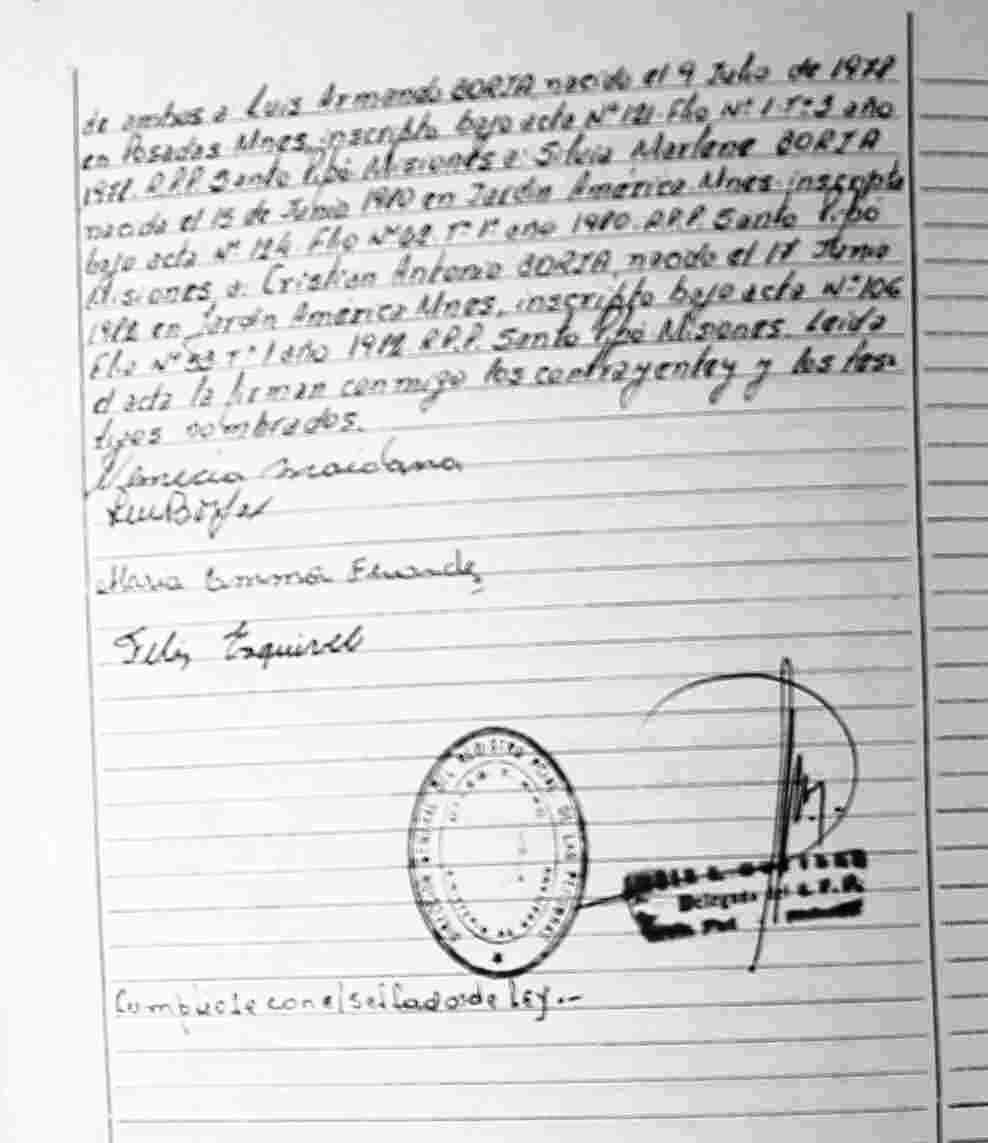 de ambos a Luis Armando BORJA nacido el 9 Julio de 1978
en Posadas Mnes, inscripto bajo acta Nº 121. Flio Nº 1. Tº 3 año
R.P.P. Santo Pipó Misiones a: Silvia Marlene BORJA
nacida el 15 de Junio 1980 en Jardín América Mnes. inscripta
bajo acta Nº 124. Flio Nº 62 Tº 1º año 1980. R.P.P. Santo Pipó
Misiones, a: Cristian Antonio BORJA, nacido el Junio
1982 en Jardín América Mnes, inscripto bajo acta Nº 106
Flio Nº 53 Tº 1 año 1982 R.P.P. Santo Pipó Misiones. Leida
el acta la firman conmigo los contrayentes y los tes-
tigos nombrados.
Maidana
Maria Emma
Felix Esquivel
DIRECCION GENERAL DEL REGISTRO PCIAL. DE LAS PERSONAS
PROVINCIA DE MISIONES
Delegada del R. P. P.
con el sellado de Ley.-